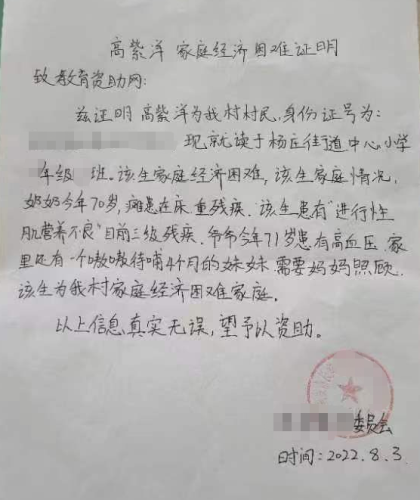 高紫洋 家庭经济困难证明
致教育资助网:
兹证明高紫洋为我村村民,身份证号为:
现就读于杨庄街道中心小学
年级 班.该生家庭经济困难,该生家庭情况,
奶奶今年70岁,瘫患在床重残疾.该生患有"进行性
肌营养不良"目前三级残疾.爷爷今年71岁患有高血压 家
里还有一个嗷嗷待哺4个月的妹妹 需要妈妈照顾,
该生为我村家庭经济困难家庭.
以上信息真实无误,望予以资助。
委员会
时间:2022.8.3.